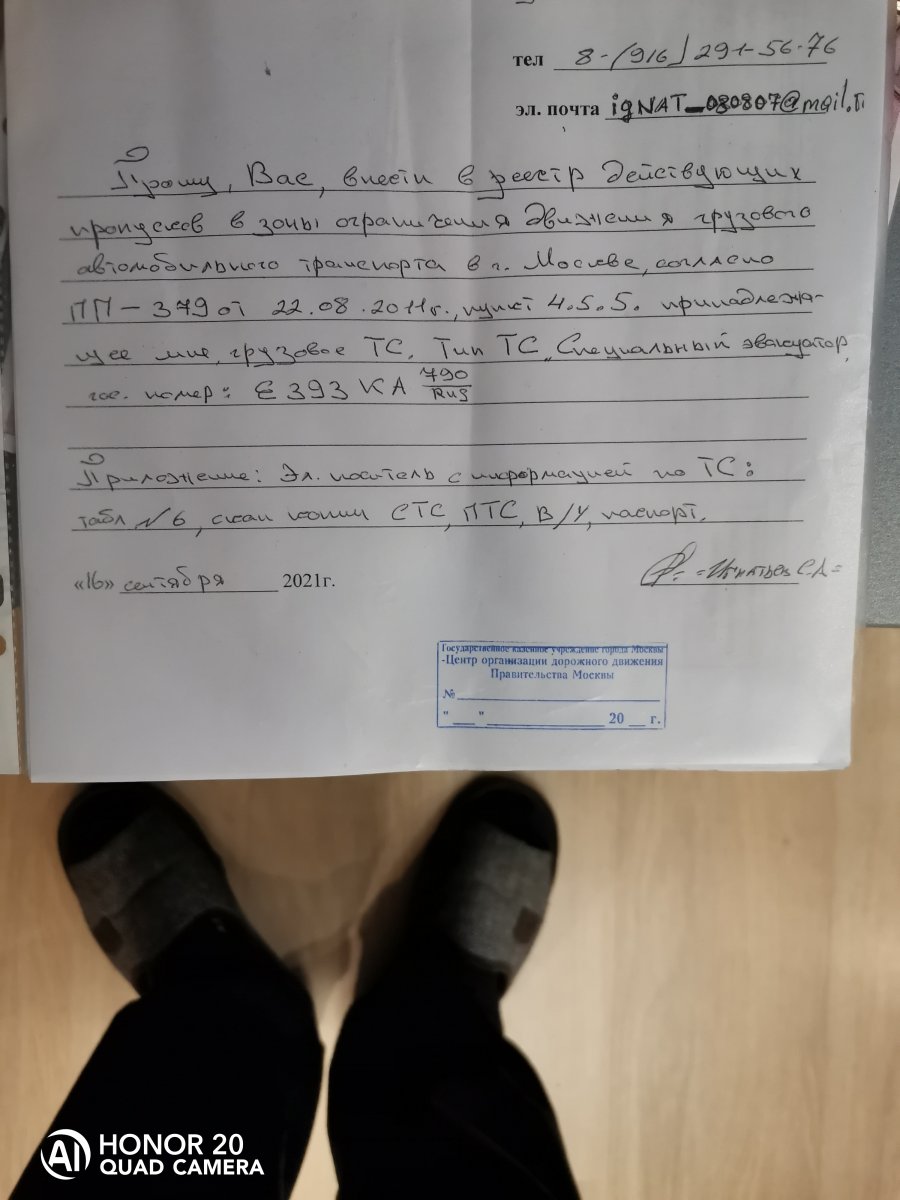 тел 8-(916) 291-56-76
эл. почта igNAT_080807@mail.r
Прошу, Вас, внести в реестр действующих
пропусков в зоны ограничения движения грузового
автомобильного транспорта в г. Москве, согласно
ПП-379 от 22.08.2011г., пункт 4.5.5. принадлежа-
щее мне, грузовое ТС. Тип ТС, Специальный эвакуатор,
гос. номер: Е 393 КА 790
RUS
Приложение: Эл. носитель с информацией по ТС:
табл №6, скан копии СТС, ПТС, В/У, паспорт.
«16» сентября 2021г.
=Игнатьев С.А=
Государственное казенное учреждение города Москвы
-Центр организации дорожного движения
Правительства Москвы
№
"__" 20__ г.
AI HONOR 20
QUAD CAMERA